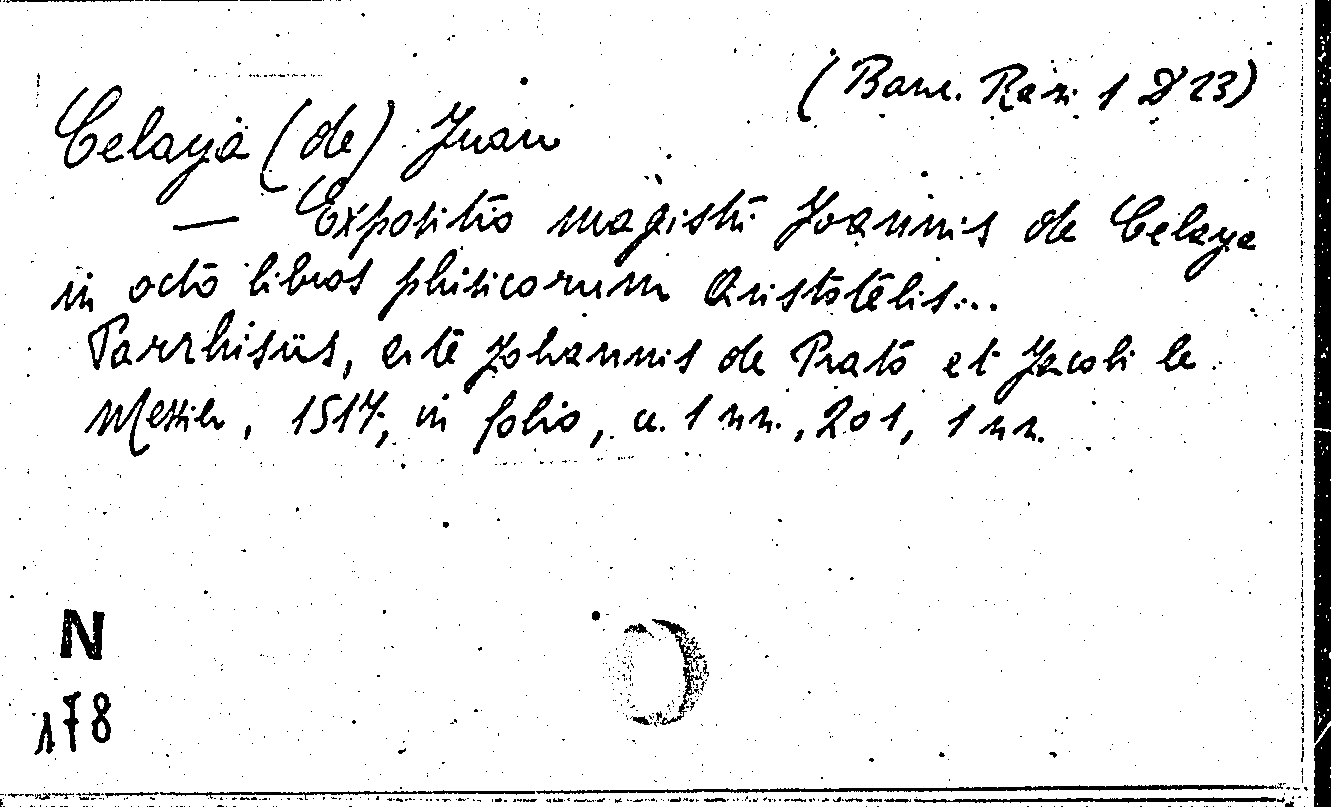 (Banc. Rari 1 D 23)
Celaya (de) Juan
— Expositio magistri Joannis de Celaya
in octo libros phisicorum Aristotelis...
Parrhisiis, arte Johannis de Prato et Jacobi le
Messier, 1517, in folio, cc. 1 nn., 201, 1 nn.
N
178